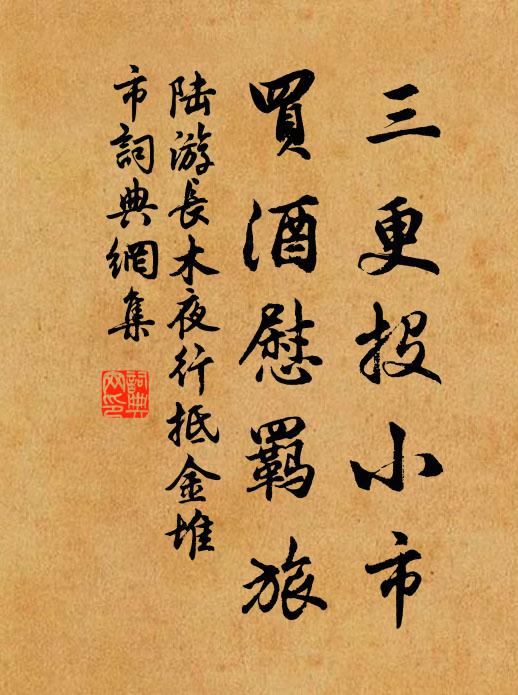 三更投小市
買酒慰羈旅
陆游長木夜行抵金堆
市詞典網集
詞典网印